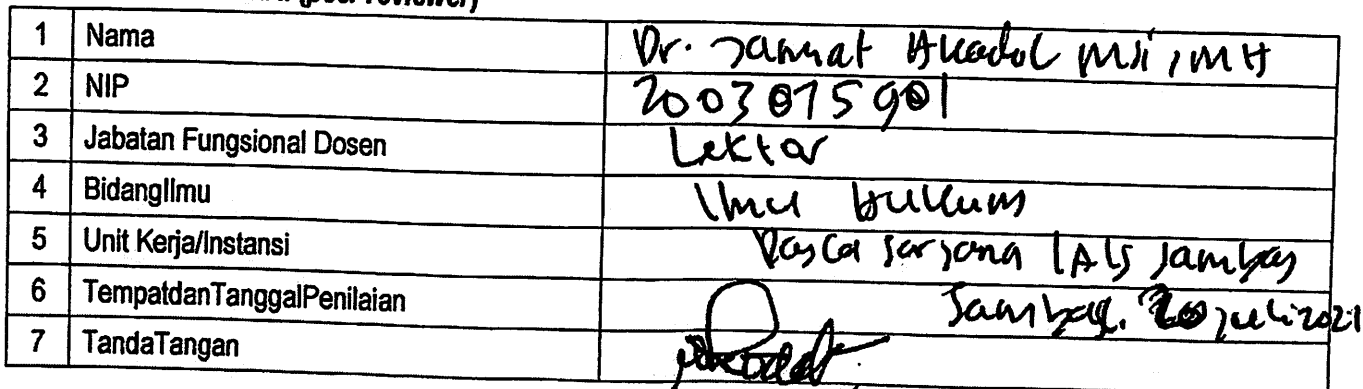 (peer reviewer)
1 Nama Dr. Jamiat Akadol MSi, MH
2 NIP 2003075901
3 Jabatan Fungsional Dosen Lektor
4 BidangIlmu Ilmu Hukum
5 Unit Kerja/Instansi Pasca sarjana IAIS Sambas
6 TempatdanTanggalPenilaian Sambas, 20 juli 2021
7 TandaTangan